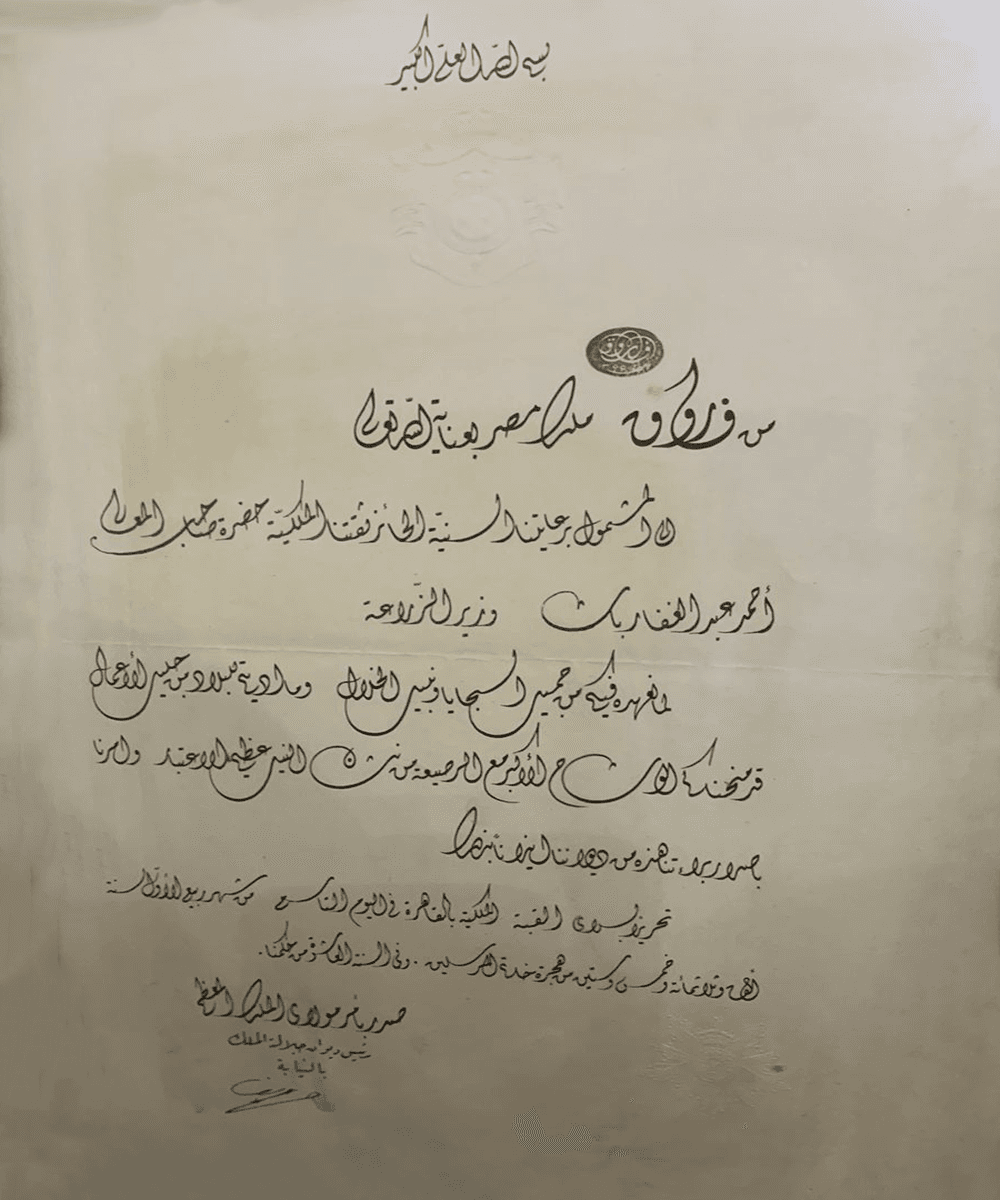 بسم الله العلي الكبير
فاروق
من فاروق ملك مصر بعناية الله تعالى
إلى المشمول برعايتنا السنيّة الحائز ثقتنا الملكيّة حضرة صاحب المعالي
أحمد عبد الغفار باشا وزير الزّراعة
لما نعهده فيكم من حميد السجايا ونبيل الخلال وما أديتم لبلادكم من جليل الأعمال
قد منحناكم الوشاح الأكبر مع الرصيعة من نشان النيل عظيم الاعتبار وأمرنا
بإصدار براءتنا هذه من ديواننا إيذانًا بذلك
تحريرًا بسراي القبة الملكية بالقاهرة في اليوم التاسع من شهر ربيع الأوّل لسنة
ألف وثلاثمائة وخمس وستين من هجرة خاتم المرسلين . وفي السنة العاشرة من حكمنا .
صدر بأمر مولاي الملك المعظم
رئيس ديوان جلالة الملك
بالنيابة